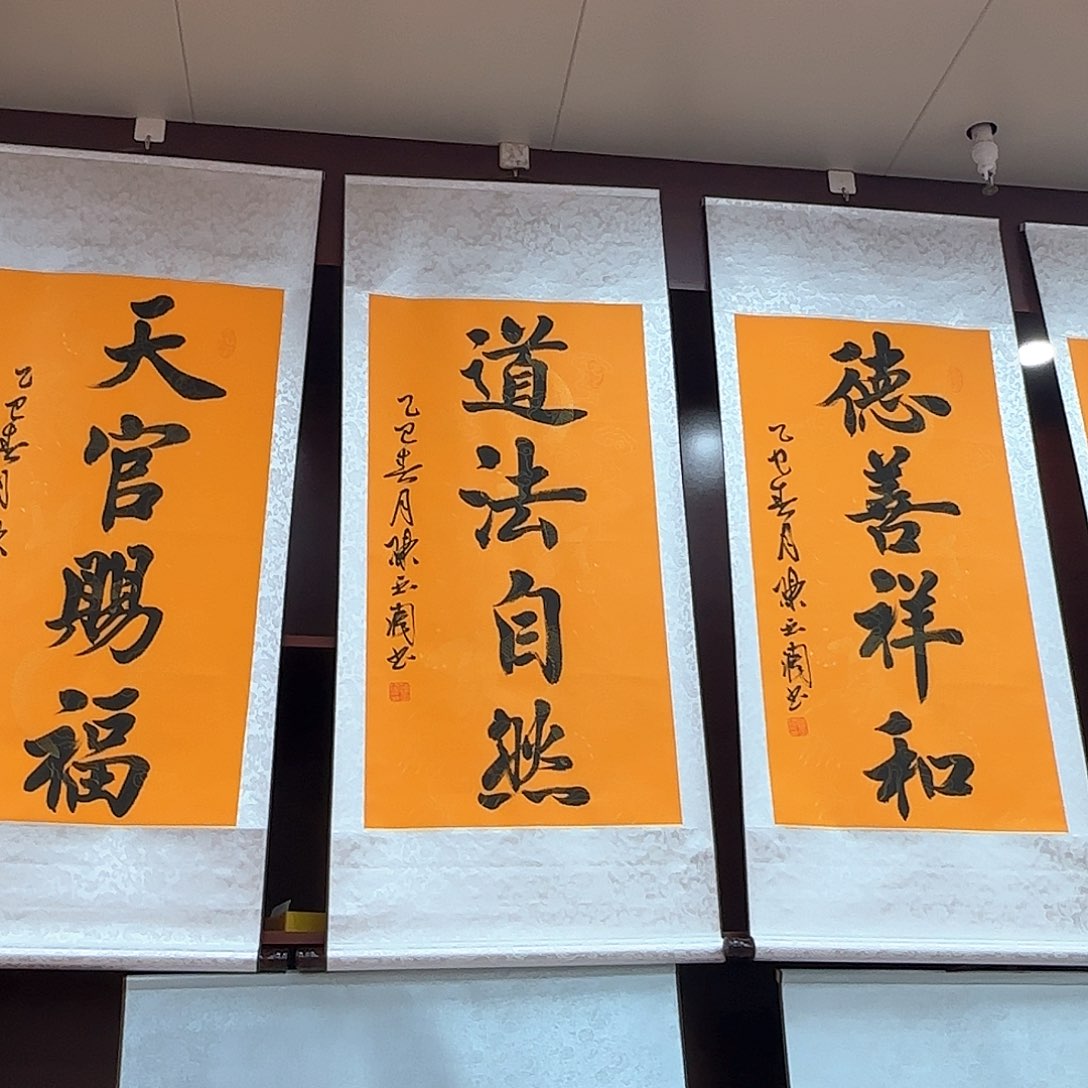 天官賜福
乙巳春月
道法自然
乙巳春月陳玉蘭书
德善祥和
乙巳春月陳玉蘭书